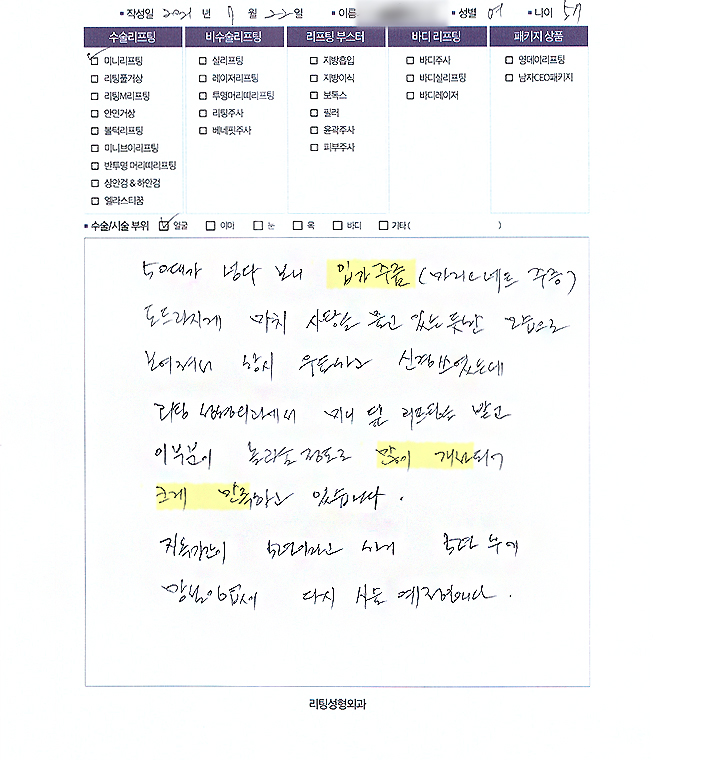 작성일 2021 년 7 월 22일 이름 성별 여 나이 57
수술리프팅 비수술리프팅 리프팅 부스터 바디 리프팅 패키지 상품
미니리프팅 실리프팅 지방흡입 바디주사 영데이리프팅
리팅풀거상 레이저리프팅 지방이식 바디실리프팅 남자CEO패키지
리팅M리프팅 투명머리띠리프팅 보톡스 바디레이저
안인거상 리팅주사 필러
볼턱리프팅 베네핏주사 윤곽주사
미니브이리프팅 피부주사
반투명 머리띠리프팅
상안검 & 하안검
엘라스티꿈
수술/시술 부위 얼굴 이마 눈 목 바디 기타( )
50대가 넘다 보니 입가주름 (마리오네트 주름)
도드라지게 마치 사탕을 물고 있는듯한 모습으로
보여져서 항시 우울하고 신경쓰였는데
리팅 성형외과에서 미니 리프팅을 받고
이부분이 놀라울 정도로 많이 개선되어
크게 만족하고 있습니다.
지속기간이 5년이라고 하니 5년 후에
망설임없이 다시 시술 예정입니다.
리팅성형외과